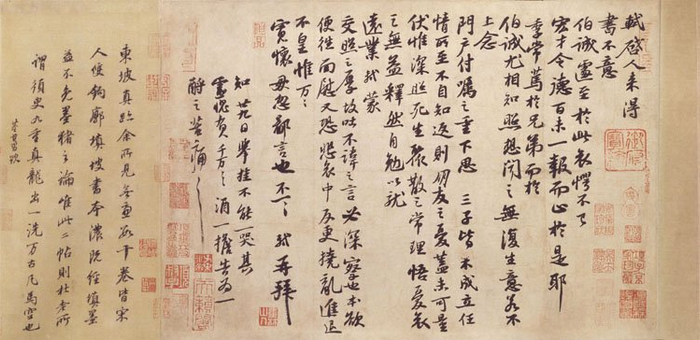 軾啓人來得
書不意
伯誠遽至於此哀愕不已
宏才令德百未一報而止於是耶
季常篤於兄弟而於
伯誠尤相知照想聞之無復生意若不
上念
門户付囑之重下思三子皆不成立任
情所至不自知返則朋友之憂蓋未可量
伏惟深照死生聚散之常理悟憂哀
之無益釋然自勉以就
遠業軾蒙
交照之厚故吐不諱之言必深察也本欲
便往面慰又恐悲哀中反更撓亂進退
不皇惟万万
寬懷毋忽鄙言也不一一軾再拜
知廿九日舉挂不能一哭其
靈愧負千万千万酒一擔告為一
酹之苦痛苦痛
東坡真跡余所見無慮卅餘卷皆宋
人雙鉤廓填坡書本濃既經填墨
益不免墨豬之論唯此二帖則杜老所
謂須臾九重真龍出一洗万古凡馬空也
董其昌跋